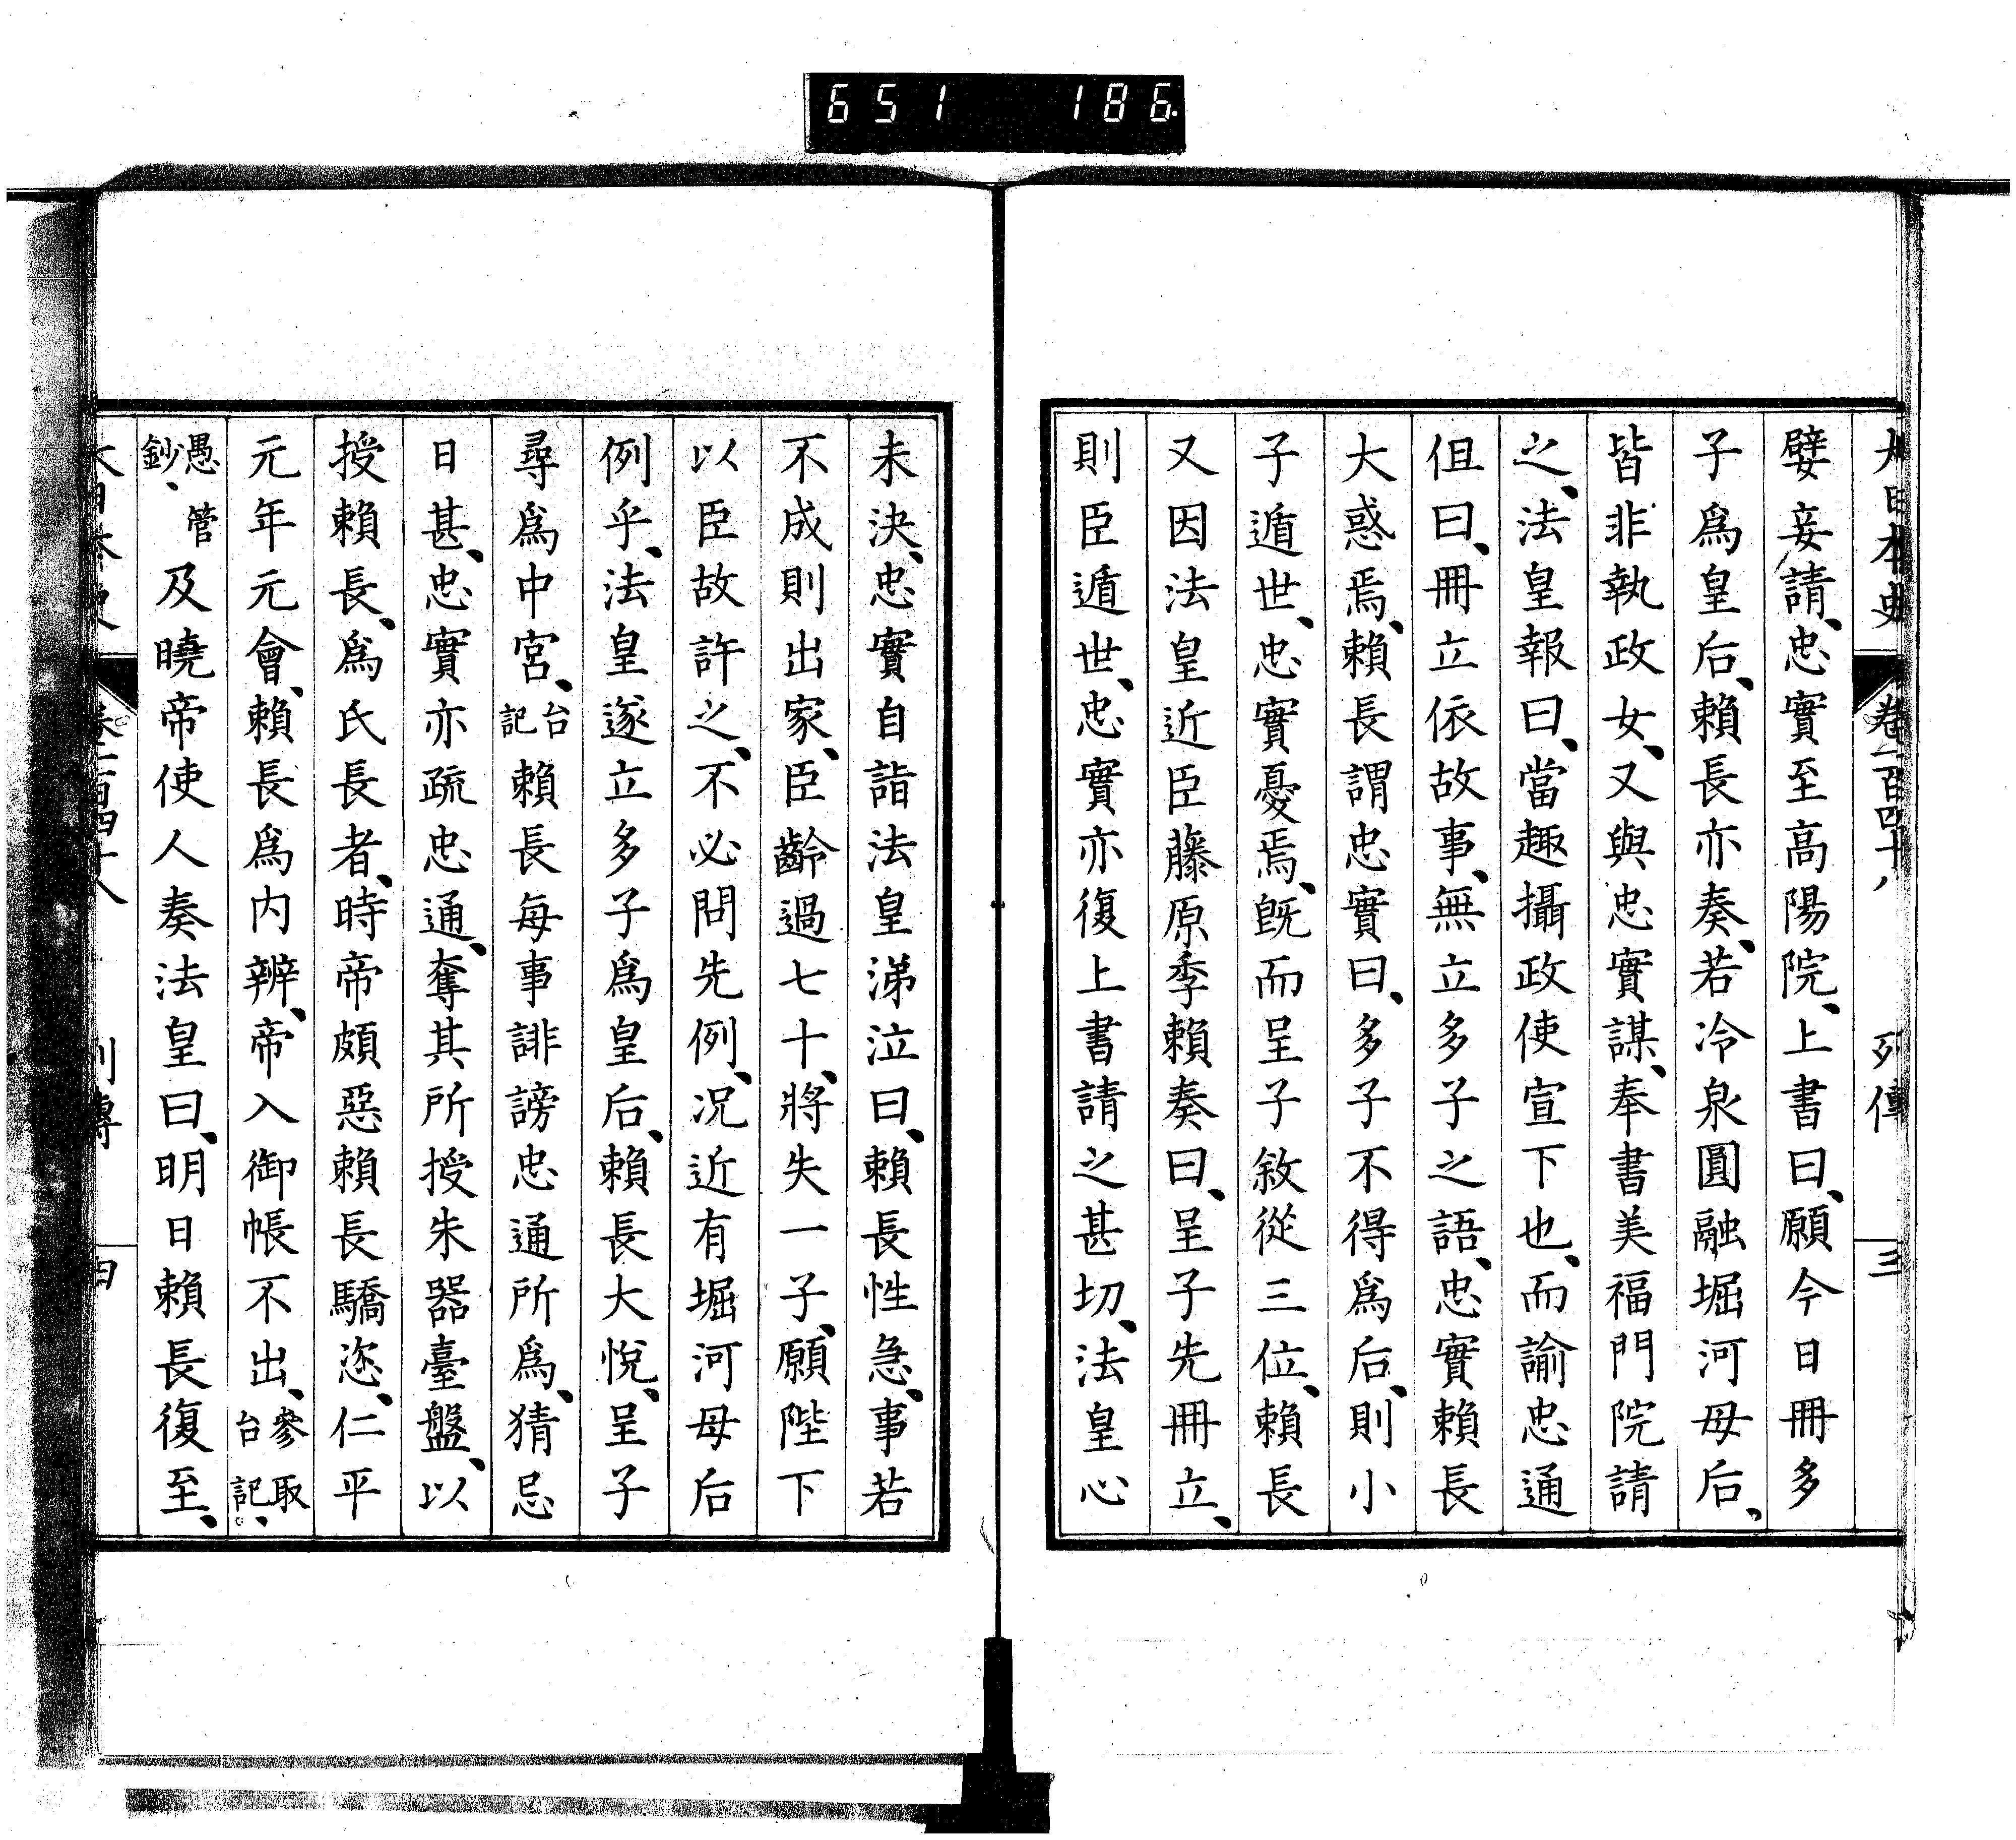 651 186
大日本史 卷一百四十八 列傳 三
嬖妾請、忠實至高陽院、上書曰、願今日冊多
子爲皇后、賴長亦奏、若冷泉圓融堀河母后、
皆非執政女、又與忠實謀、奉書美福門院請
之、法皇報曰、當趣攝政使宣下也、而諭忠通
但曰、冊立依故事、無立多子之語、忠實賴長
大惑焉、賴長謂忠實曰、多子不得爲后、則小
子遁世、忠實憂焉、既而呈子敘從三位、賴長
又因法皇近臣藤原季賴奏曰、呈子先冊立、
則臣遁世、忠實亦復上書請之甚切、法皇心
未決、忠實自詣法皇涕泣曰、賴長性急、事若
不成則出家、臣齡過七十、將失一子、願陛下
以臣故許之、不必問先例、况近有堀河母后
例乎、法皇遂立多子爲皇后、賴長大悅、呈子
尋爲中宮、台記賴長每事誹謗忠通所爲、猜忌
日甚、忠實亦疏忠通、奪其所授朱器臺盤、以
授賴長、爲氏長者、時帝頗惡賴長驕恣、仁平
元年元會、賴長爲内辨、帝入御帳不出、參取台記、
愚管鈔、及曉帝使人奏法皇曰、明日賴長復至、
大日本史 卷一百四十八 列傳 四